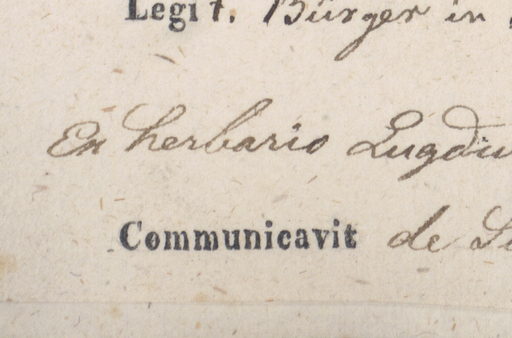 Legit. Bürger in
Ex herbario Lugdu
Communicavit de